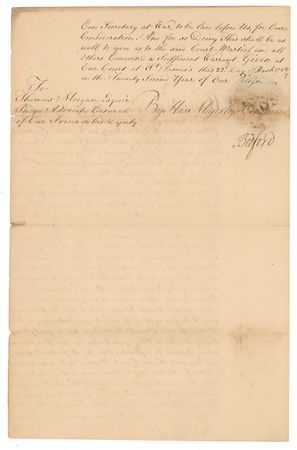 Our Secretary at War, to be laid before Us, for Our
Consideration. And for so Doing This shall be as
well to you as to the said Court Martial and all
Others Concern'd a Sufficient Warrant. Given at
Our Court at St. James's this 23d Day of March
in the Twenty Second Year of Our Reign
To
Thomas Morgan Esquire
Judge Advocate General
of Our Forces or his Deputy
By His Majesty's Command
Bedford